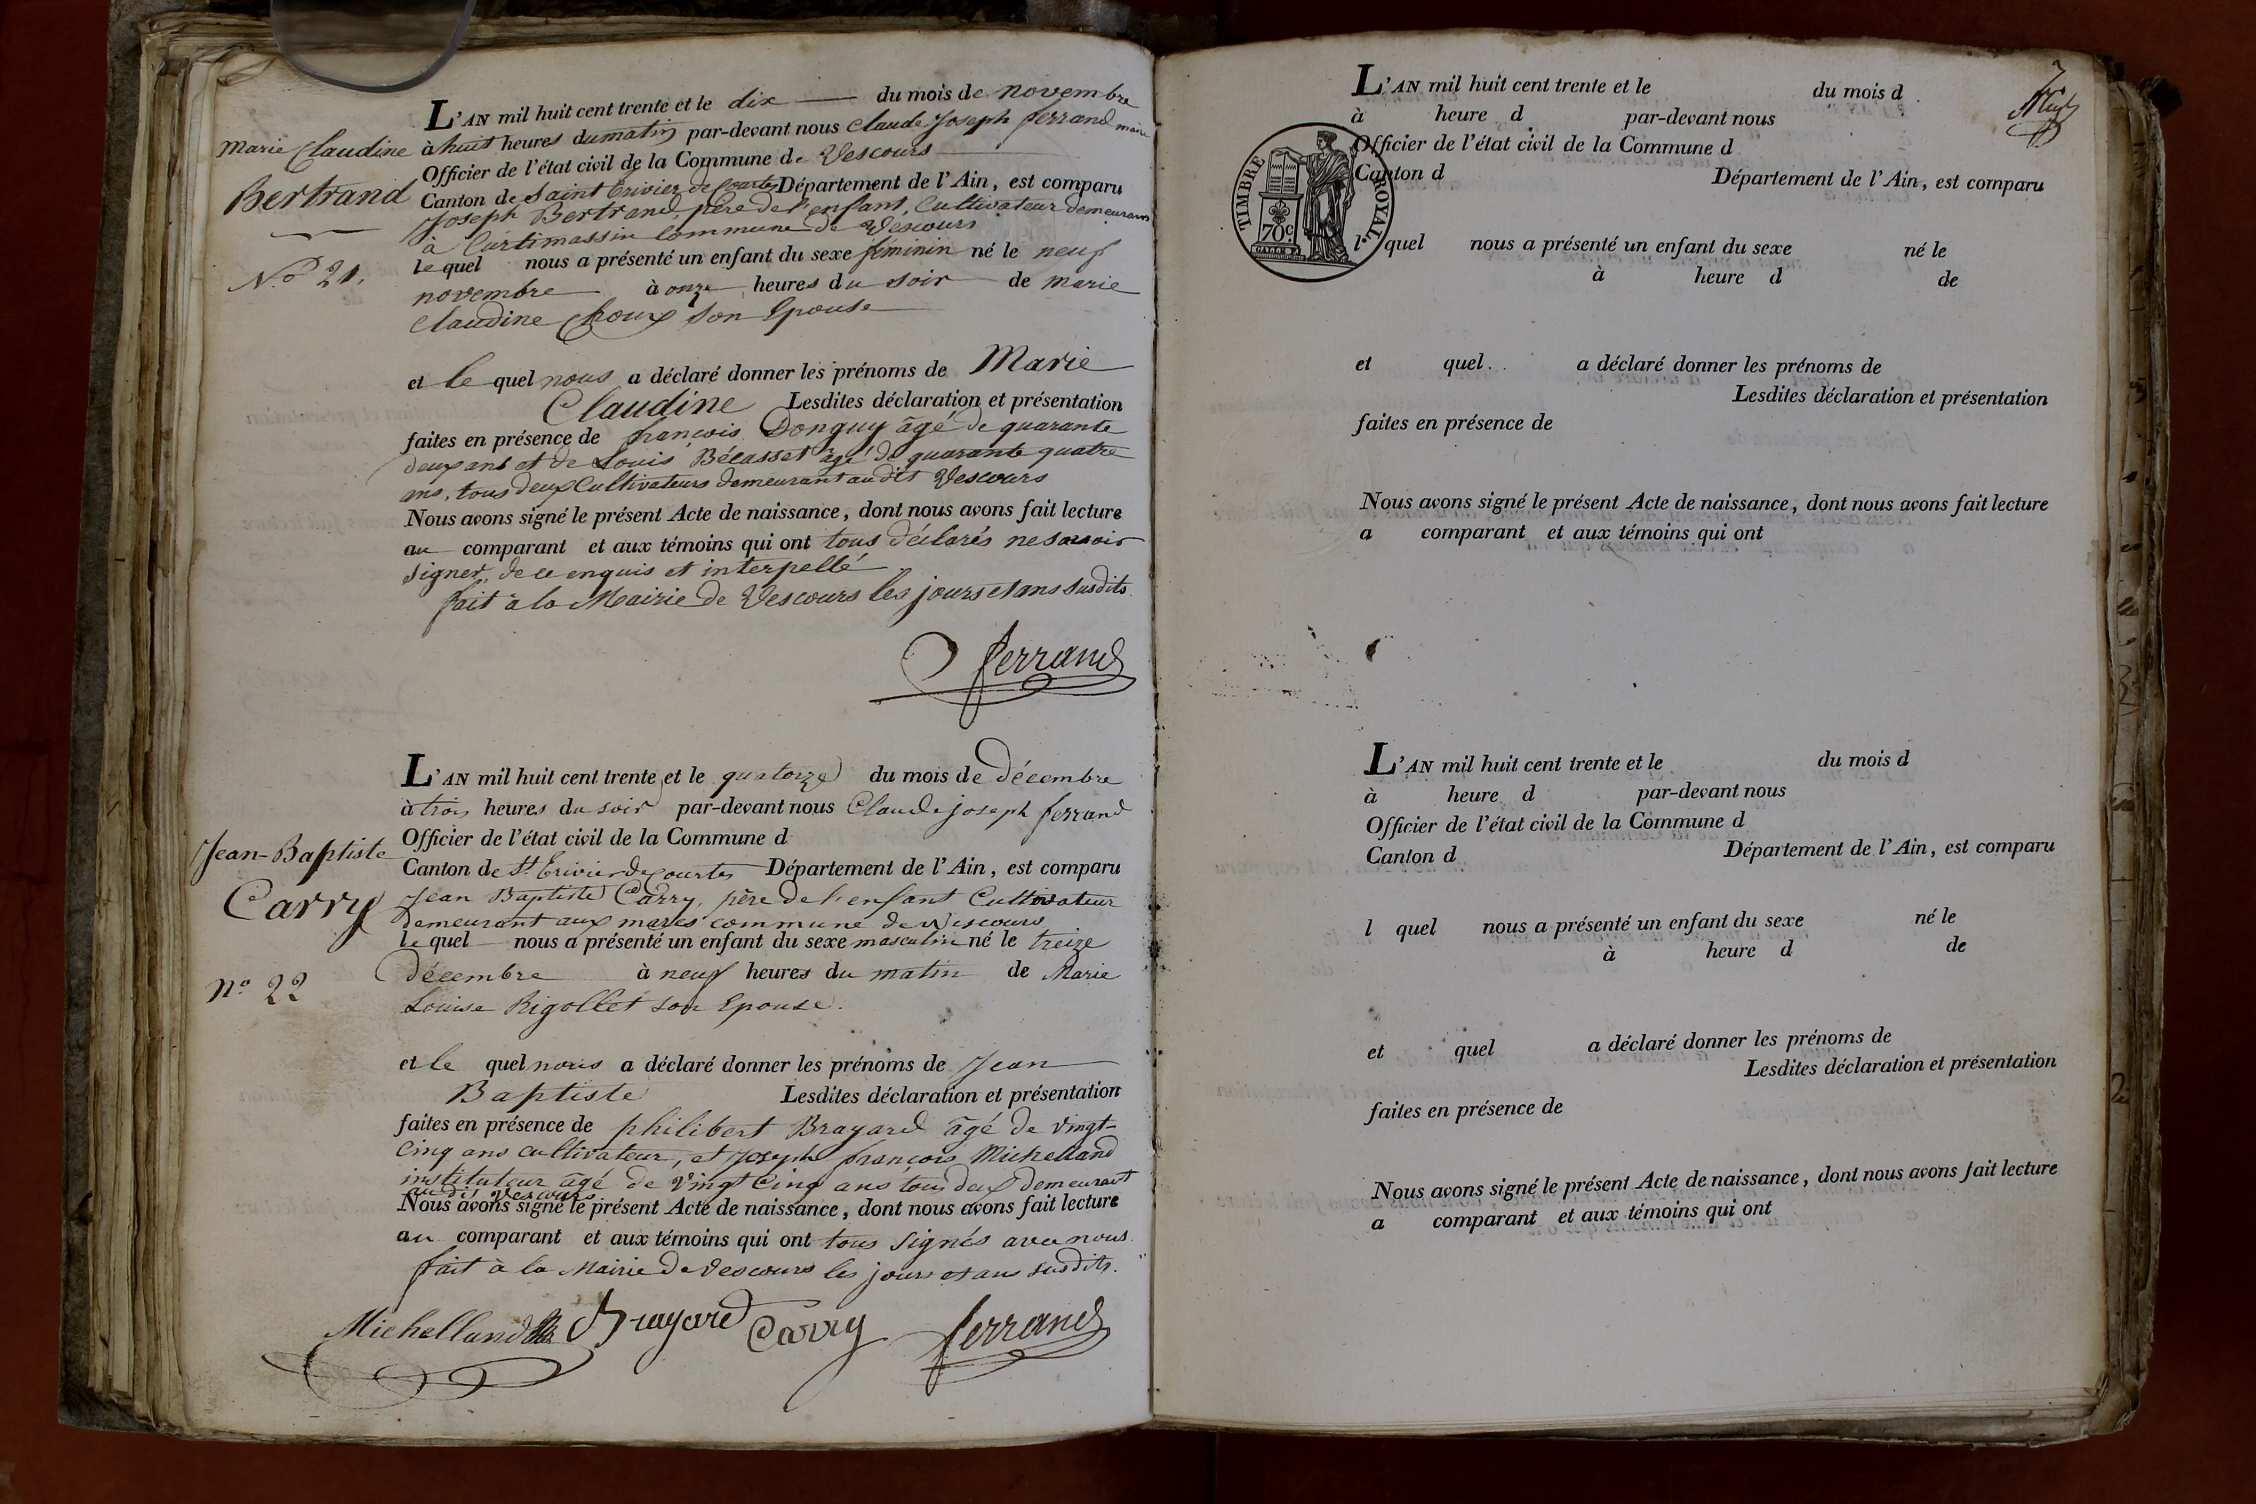 L'AN mil huit cent trente et le dix du mois de novembre
à huit heures du matin par-devant nous Claude Joseph ferrand maire
Officier de l'état civil de la Commune de Vescours
Canton de Saint Trivier de Courtes Département de l'Ain, est comparu
Joseph Bertrand, père de l'enfant, Cultivateur demeurant
à Curtimassin commune de Vescours
lequel nous a présenté un enfant du sexe féminin né le neuf
novembre à onze heures du soir de marie
Claudine Choux son Epouse
et le quel nous a déclaré donner les prénoms de Marie
Claudine Lesdites déclaration et présentation
faites en présence de françois Donguy âgé de quarante
deux ans et de Louis Bécasset âgé de quarante quatre
ans, tous deux Cultivateurs demeurant audit Vescours
Nous avons signé le présent Acte de naissance, dont nous avons fait lecture
au comparant et aux témoins qui ont tous déclarés ne savoir
signer, de ce enquis et interpellé
fait à la Mairie de Vescours les jours et ans susdits
ferrand
Marie Claudine
Bertrand
N.o 21.
L'AN mil huit cent trente et le quatorze du mois de décembre
à trois heures du soir par-devant nous Claude joseph ferrand
Officier de l'état civil de la Commune d
Canton de St Trivier de Courtes Département de l'Ain, est comparu
Jean Baptiste Carry, père de l'enfant Cultivateur
demeurant aux mares commune de Vescours
lequel nous a présenté un enfant du sexe masculin né le treize
décembre à neuf heures du matin de Marie
Louise Rigollet son Epouse.
et le quel nous a déclaré donner les prénoms de Jean
Baptiste Lesdites déclaration et présentation
faites en présence de philibert Brayard âgé de vingt-
cinq ans cultivateur, et Joseph françois Michelland
instituteur âgé de vingt cinq ans tous deux demeurant
audit Vescours
Nous avons signé le présent Acte de naissance, dont nous avons fait lecture
au comparant et aux témoins qui ont tous signés avec nous.
fait à la Mairie de Vescours les jours et ans susdits.
Michelland Brayard Carry ferrand
Jean-Baptiste
Carry
No 22
L'AN mil huit cent trente et le du mois d
à heure d par-devant nous
Officier de l'état civil de la Commune d
Canton d Département de l'Ain, est comparu
TIMBRE ROYAL
70c.
l quel nous a présenté un enfant du sexe né le
à heure d de
et quel a déclaré donner les prénoms de
Lesdites déclaration et présentation
faites en présence de
Nous avons signé le présent Acte de naissance, dont nous avons fait lecture
a comparant et aux témoins qui ont
L'AN mil huit cent trente et le du mois d
à heure d par-devant nous
Officier de l'état civil de la Commune d
Canton d Département de l'Ain, est comparu
l quel nous a présenté un enfant du sexe né le
à heure d de
et quel a déclaré donner les prénoms de
Lesdites déclaration et présentation
faites en présence de
Nous avons signé le présent Acte de naissance, dont nous avons fait lecture
a comparant et aux témoins qui ont